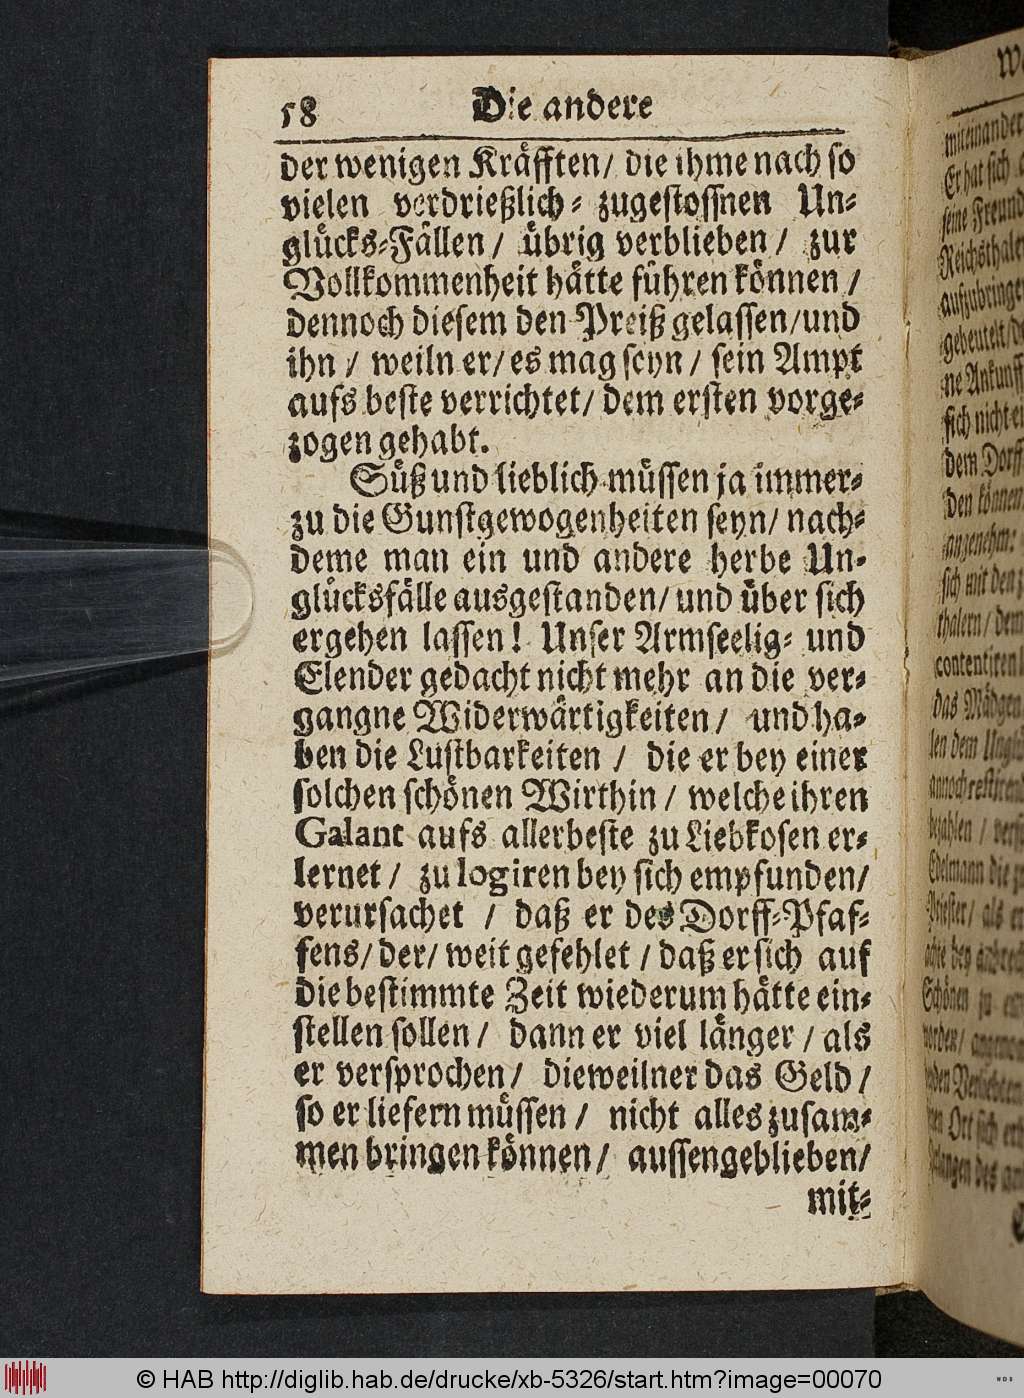 58 Die andere
der wenigen Kräfften/ die ihme nach so
vielen verdrießlich- zugestossnen Un-
glücks-Fällen / übrig verblieben / zur
Vollkommenheit hätte führen können /
dennoch diesem den Preiß gelassen/und
ihn / weiln er/ es mag seyn / sein Ampt
aufs beste verrichtet/ dem ersten vorge-
zogen gehabt.
Süß und lieblich müssen ja immer-
zu die Gunstgewogenheiten seyn/ nach-
deme man ein und andere herbe Un-
glücksfälle ausgestanden/ und über sich
ergehen lassen! Unser Armseelig- und
Elender gedacht nicht mehr an die ver-
gangne Widerwärtigkeiten / und ha-
ben die Lustbarkeiten / die er bey einer
solchen schönen Wirthin / welche ihren
Galant aufs allerbeste zu Liebkosen er-
lernet / zu logiren bey sich empfunden/
verursachet / daß er des Dorff-Pfaf-
fens/ der/ weit gefehlet / daß er sich auf
die bestimmte Zeit wiederum hätte ein-
stellen sollen / dann er viel länger / als
er versprochen / dieweilner das Geld /
so er liefern müssen / nicht alles zusam-
men bringen können / aussengeblieben/
mit-
miteinander
Er hat sich
seine Freund
Reichsthale
aufzubringe
gebeutelt/
ne Ankunfft
sich nicht
dem Dorff
den können
angenehm:
sich mit den
thalern / dem
contentiren
das Mädgen
len dem
bezahlen /
Edelmann die
Priester / als
Schönen zu
© HAB http://diglib.hab.de/drucke/xb-5326/start.htm?image=00070